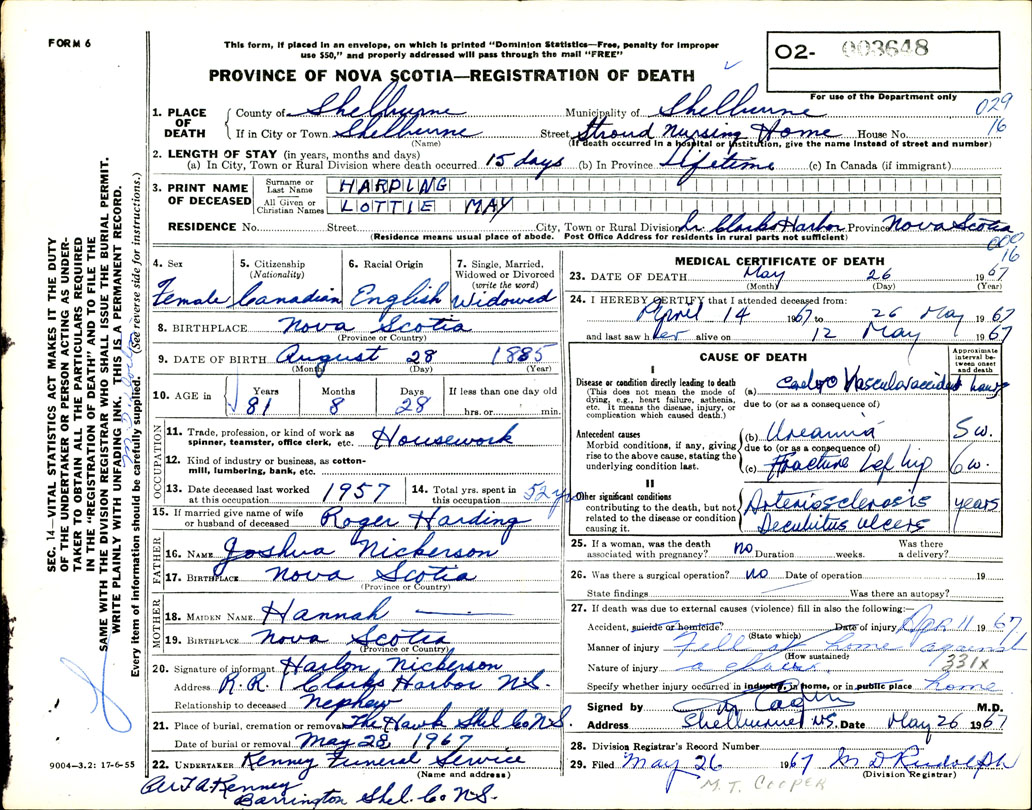 FORM 6
This form, if placed in an envelope, on which is printed "Dominion Statistics—Free, penalty for improper
use $50," and properly addressed will pass through the mail "FREE"
O2- 003648
For use of the Department only
PROVINCE OF NOVA SCOTIA—REGISTRATION OF DEATH
029
16
1. PLACE OF DEATH County of Shelburne Municipality of Shelburne
If in City or Town Shelburne Street Stroud Nursing Home House No.
(Name) (If death occurred in a hospital or institution, give the name instead of street and number)
2. LENGTH OF STAY (in years, months and days)
(a) In City, Town or Rural Division where death occurred 15 days (b) In Province Lifetime (c) In Canada (if immigrant)
3. PRINT NAME OF DECEASED
Surname or Last Name HARDING
All Given or Christian Names LOTTIE MAY
RESIDENCE No. Street City, Town or Rural Division Clarks Harbor Province Nova Scotia
(Residence means usual place of abode. Post Office Address for residents in rural parts not sufficient)
000
16
4. Sex Female
5. Citizenship (Nationality) Canadian
6. Racial Origin English
7. Single, Married, Widowed or Divorced (write the word) Widowed
8. BIRTHPLACE Nova Scotia
(Province or Country)
9. DATE OF BIRTH August 28 1885
(Month) (Day) (Year)
10. AGE in Years 81 Months 8 Days 28 If less than one day old hrs. or min.
OCCUPATION
11. Trade, profession or kind of work as spinner, teamster, office clerk, etc. Housework
12. Kind of industry or business, as cotton-mill, lumbering, bank, etc.
13. Date deceased last worked at this occupation 1957
14. Total yrs. spent in this occupation 52 yrs
15. If married give name of wife or husband of deceased Roger Harding
FATHER
16. NAME Joshua Nickerson
17. BIRTHPLACE Nova Scotia
(Province or Country)
MOTHER
18. MAIDEN NAME Hannah —
19. BIRTHPLACE Nova Scotia
(Province or Country)
20. Signature of informant Harlon Nickerson
Address R.R. 1 Clarks Harbor N.S.
Relationship to deceased Nephew
21. Place of burial, cremation or removal The Hawk Shel Co N.S.
Date of burial or removal May 28, 1967
22. UNDERTAKER Kenney Funeral Service
(Name and address)
Kenney
Barrington Shel. Co N.S.
MEDICAL CERTIFICATE OF DEATH
23. DATE OF DEATH May 26 1967
(Month) (Day) (Year)
24. I HEREBY CERTIFY that I attended deceased from:
April 14 1967 to 26 May 1967
and last saw her alive on 12 May 1967
CAUSE OF DEATH
Approximate interval between onset and death
I
Disease or condition directly leading to death
(This does not mean the mode of dying, e.g., heart failure, asthenia, etc. It means the disease, injury, or complication which caused death.)
(a) Vascular accident hours
due to (or as a consequence of)
Antecedent causes
Morbid conditions, if any, giving rise to the above cause, stating the underlying condition last.
(b) Uraemia 5 w.
due to (or as a consequence of)
(c) Fracture Lef hip 6 w.
II
Other significant conditions
contributing to the death, but not related to the disease or condition causing it.
Arteriosclerosis years
Decubitus ulcers
25. If a woman, was the death associated with pregnancy? no Duration weeks. Was there a delivery?
26. Was there a surgical operation? no Date of operation 19
State findings Was there an autopsy?
27. If death was due to external causes (violence) fill in also the following:—
Accident, suicide or homicide? Date of injury Apr 11 1967
(State which)
Manner of injury Fell at home against
(How sustained)
Nature of injury a
331x
Specify whether injury occurred in industry, in home, or in public place home
Signed by M.D.
Address Shelburne NS. Date May 26 1967
28. Division Registrar's Record Number
29. Filed May 26 1967 M D Rudolph
(Division Registrar)
M.T. COOPER
SEC. 14—VITAL STATISTICS ACT MAKES IT THE DUTY
OF THE UNDERTAKER OR PERSON ACTING AS UNDER-
TAKER TO OBTAIN ALL THE PARTICULARS REQUIRED
IN THE "REGISTRATION OF DEATH" AND TO FILE THE
SAME WITH THE DIVISION REGISTRAR WHO SHALL ISSUE THE BURIAL PERMIT.
WRITE PLAINLY WITH UNFADING INK. THIS IS A PERMANENT RECORD.
Every item of information should be carefully supplied. (See reverse side for instructions.)
9004—3.2: 17-6-55